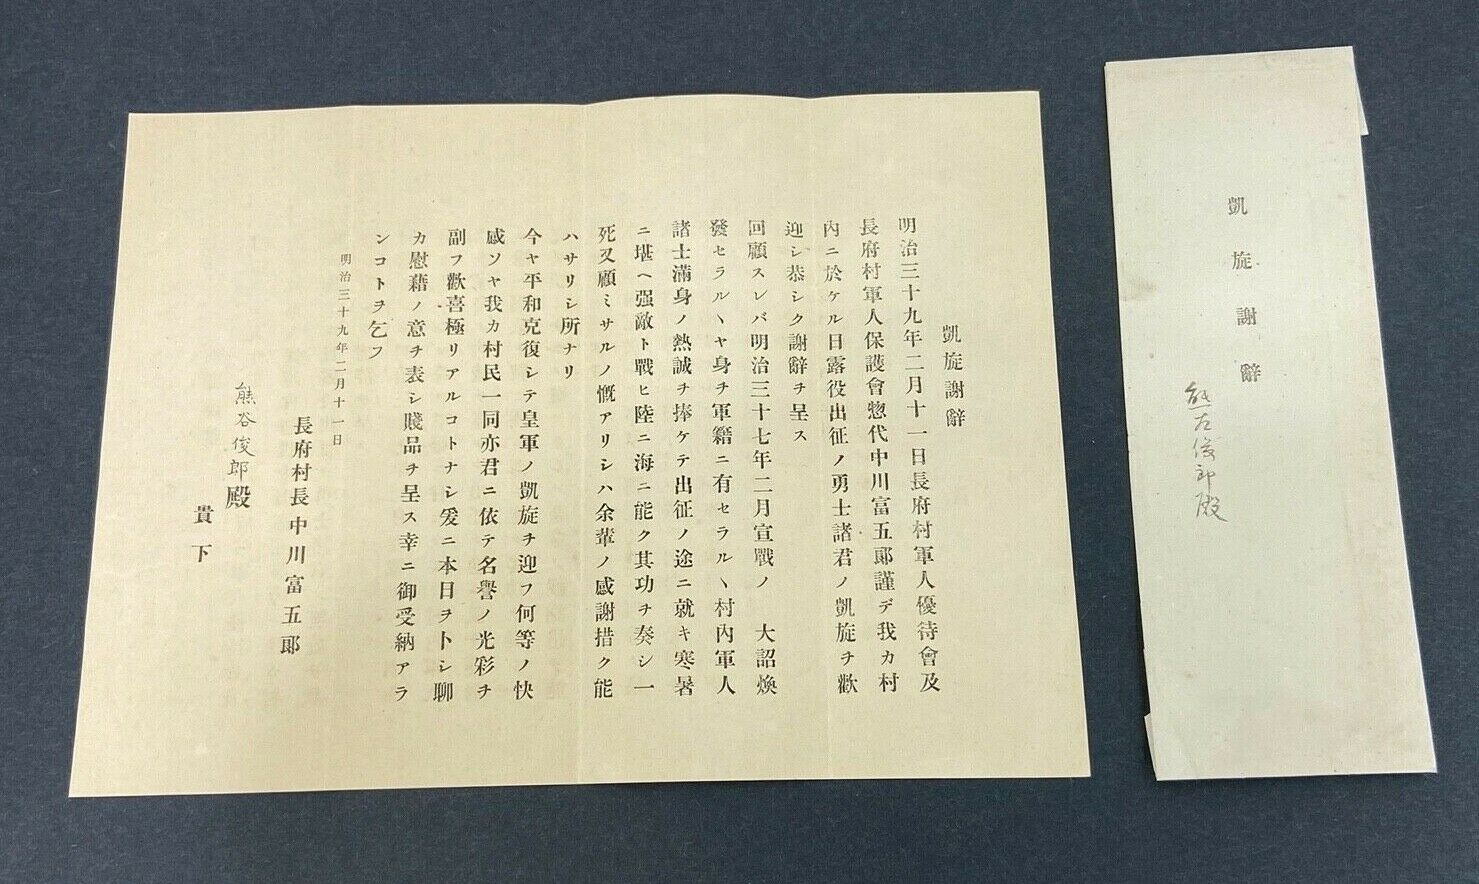 凱旋謝辭
明治三十九年二月十一日長府村軍人優待會及
長府村軍人保護會惣代中川富五郎謹デ我カ村
內ニ於ケル日露役出征ノ勇士諸君ノ凱旋ヲ歡
迎シ恭シク謝辭ヲ呈ス
回顧スレバ明治三十七年二月宣戰ノ　大詔煥
發セラルヽヤ身ヲ軍籍ニ有セラルヽ村內軍人
諸士滿身ノ熱誠ヲ捧ケテ出征ノ途ニ就キ寒暑
ニ堪ヘ强敵ト戰ヒ陸ニ海ニ能ク其功ヲ奏シ一
死又顧ミサルノ慨アリシハ余輩ノ感謝措ク能
ハサリシ所ナリ
今ヤ平和克復シテ皇軍ノ凱旋ヲ迎フ何等ノ快
感ソヤ我カ村民一同亦君ニ依テ名譽ノ光彩ヲ
副フ歡喜極リアルコトナシ爰ニ本日ヲトシ聊
カ慰藉ノ意ヲ表シ賤品ヲ呈ス幸ニ御受納アラ
ンコトヲ乞フ
明治三十九年二月十一日
長府村長中川富五郎
熊谷俊郎殿
貴下
凱旋謝辭
熊谷俊郎殿